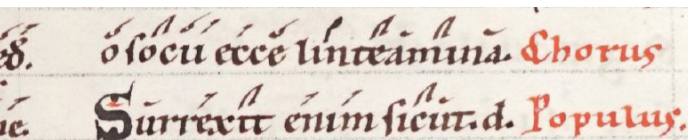 eđ. o socii ecce linteamina. Chorus
ie. Surrexit enim sicut. d. Populus.